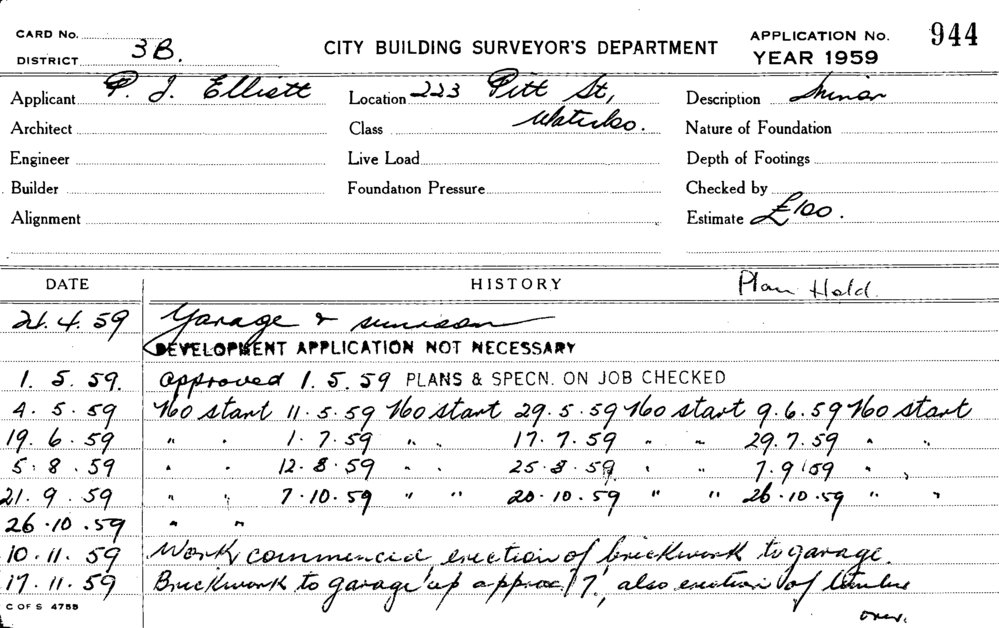 CARD No.
DISTRICT 3B.
CITY BUILDING SURVEYOR'S DEPARTMENT
APPLICATION No. 944
YEAR 1959
Applicant P. J. Elliott Location 223 Pitt St, Description Minor
Architect Class Waterloo. Nature of Foundation
Engineer Live Load Depth of Footings
Builder Foundation Pressure Checked by
Alignment Estimate £100.
DATE HISTORY Plan Held.
21.4.59 Garage & sunroom
DEVELOPMENT APPLICATION NOT NECESSARY
1.5.59. approved 1.5.59 PLANS & SPECN. ON JOB CHECKED
4.5.59 No start 11.5.59 No start 29.5.59 No start 9.6.59 No start
19.6.59 " " 1.7.59 " " 17.7.59 " " 29.7.59 " "
5.8.59 " " 12.8.59 " " 25.8.59 " " 7.9.59 " "
21.9.59 " " 7.10.59 " " 20.10.59 " " 26.10.59 " "
26.10.59 " "
10.11.59 Work commenced erection of brickwork to garage.
17.11.59 Brickwork to garage up approx 7', also erection of timber
C OF S 475B over.